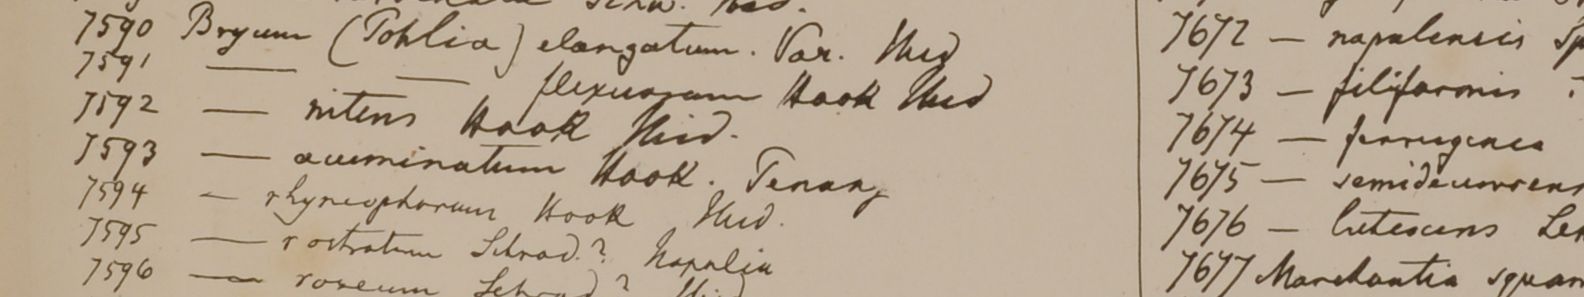 7590 Bryum (Pohlia) elongatum. Var. Ibid
7591 — — flexuosum Hook Ibid
7592 — nitens Hook Ibid.
7593 — acuminatum Hook. Penang
7594 — Hook Ibid.
7595 — rostratum Schrad.? Napalia
7596 — roseum Schrad? Ibid
7672 — napalensis
7673 — filiformis
7674 — ferruginea
7675 — semidecurrens
7676 — lutescens
7677 Marchantia squam